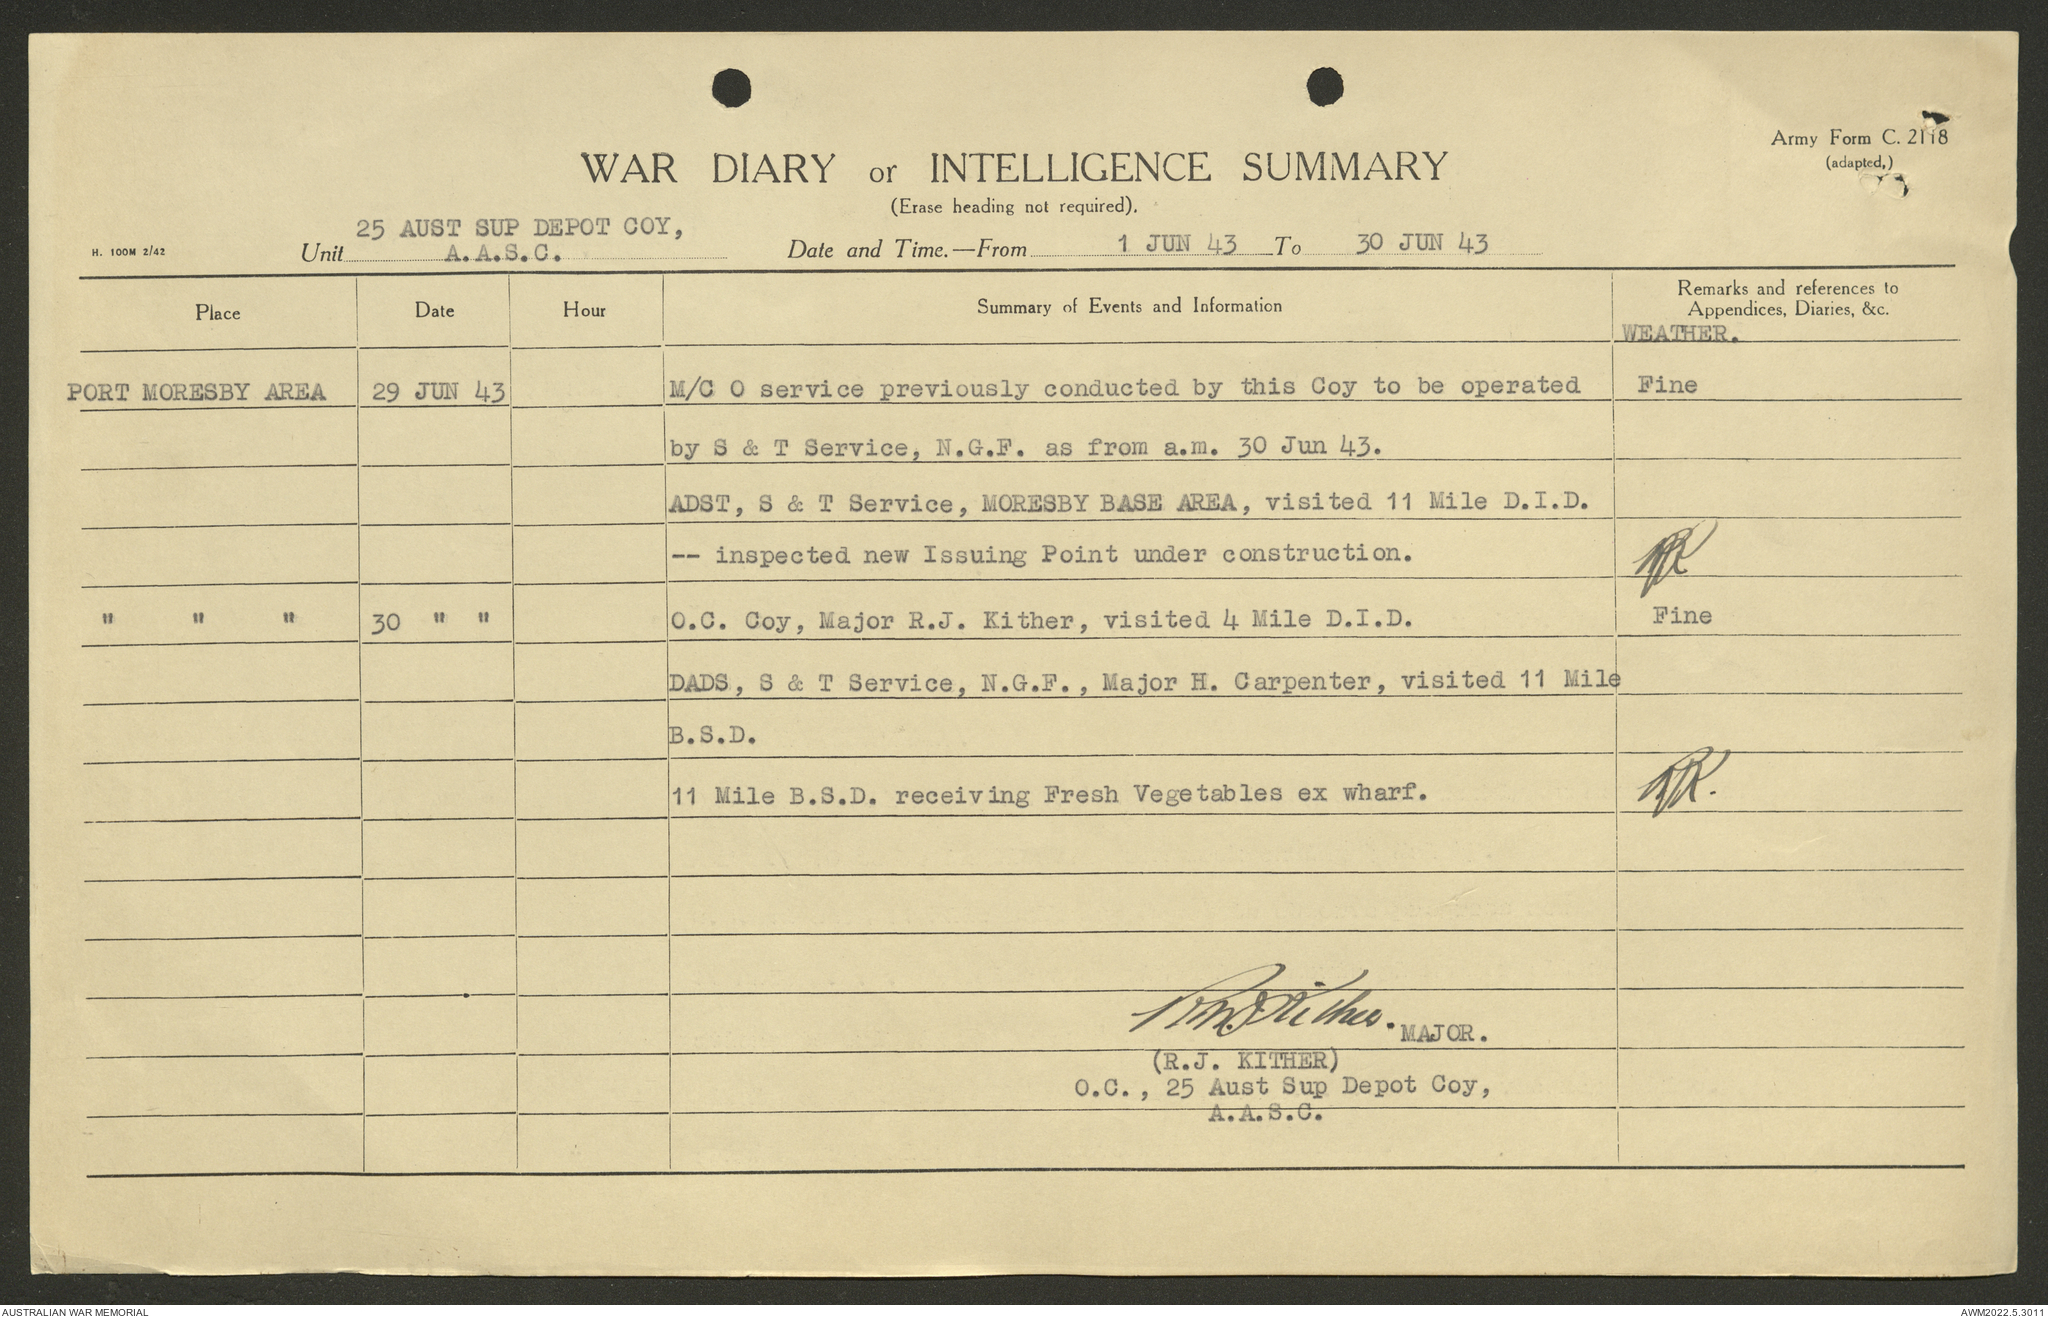 Army Form C. 2118
(adapted.)
WAR DIARY or INTELLIGENCE SUMMARY
(Erase heading not required).
H. 100M 2/42
Unit 25 AUST SUP DEPOT COY,
A.A.S.C.
Date and Time.—From 1 JUN 43 To 30 JUN 43
Place Date Hour Summary of Events and Information Remarks and references to
Appendices, Diaries, &c.
WEATHER.
PORT MORESBY AREA 29 JUN 43 M/C O service previously conducted by this Coy to be operated Fine
by S & T Service, N.G.F. as from a.m. 30 Jun 43.
ADST, S & T Service, MORESBY BASE AREA, visited 11 Mile D.I.D.
-- inspected new Issuing Point under construction.
" " " 30 " " O.C. Coy, Major R.J. Kither, visited 4 Mile D.I.D. Fine
DADS, S & T Service, N.G.F., Major H. Carpenter, visited 11 Mile
B.S.D.
11 Mile B.S.D. receiving Fresh Vegetables ex wharf.
MAJOR.
(R.J. KITHER)
O.C., 25 Aust Sup Depot Coy,
A.A.S.C.
AUSTRALIAN WAR MEMORIAL AWM2022.5.3011